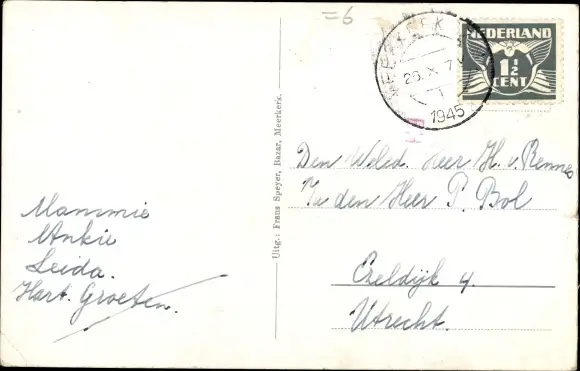 =6
MEERKERK
26.X.7
1
1945
NEDERLAND
1 1/2
CENT
Den Weled. Heer H. v. Rennes
P/a den Heer P. Bol
Ezeldijk 4.
Utrecht.
Mammie
Ankie
Leida.
Hart. Groeten.
Uitg.: Frans Speyer, Bazar, Meerkerk.